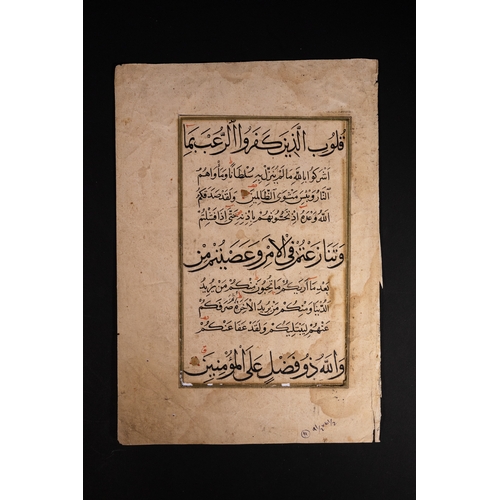 قُلُوبِ الَّذِينَ كَفَرُوا الرُّعْبَ بِمَا
أَشْرَكُوا بِاللَّهِ مَا لَمْ يُنَزِّلْ بِهِ سُلْطَانًا وَمَأْوَاهُمُ
النَّارُ وَبِئْسَ مَثْوَى الظَّالِمِينَ وَلَقَدْ صَدَقَكُمُ
اللَّهُ وَعْدَهُ إِذْ تَحُسُّونَهُمْ بِإِذْنِهِ حَتَّى إِذَا فَشِلْتُمْ
وَتَنَازَعْتُمْ فِي الْأَمْرِ وَعَصَيْتُمْ مِنْ
بَعْدِ مَا أَرَاكُمْ مَا تُحِبُّونَ مِنْكُمْ مَنْ يُرِيدُ
الدُّنْيَا وَمِنْكُمْ مَنْ يُرِيدُ الْآخِرَةَ ثُمَّ صَرَفَكُمْ
عَنْهُمْ لِيَبْتَلِيَكُمْ وَلَقَدْ عَفَا عَنْكُمْ
وَاللَّهُ ذُو فَضْلٍ عَلَى الْمُؤْمِنِينَ